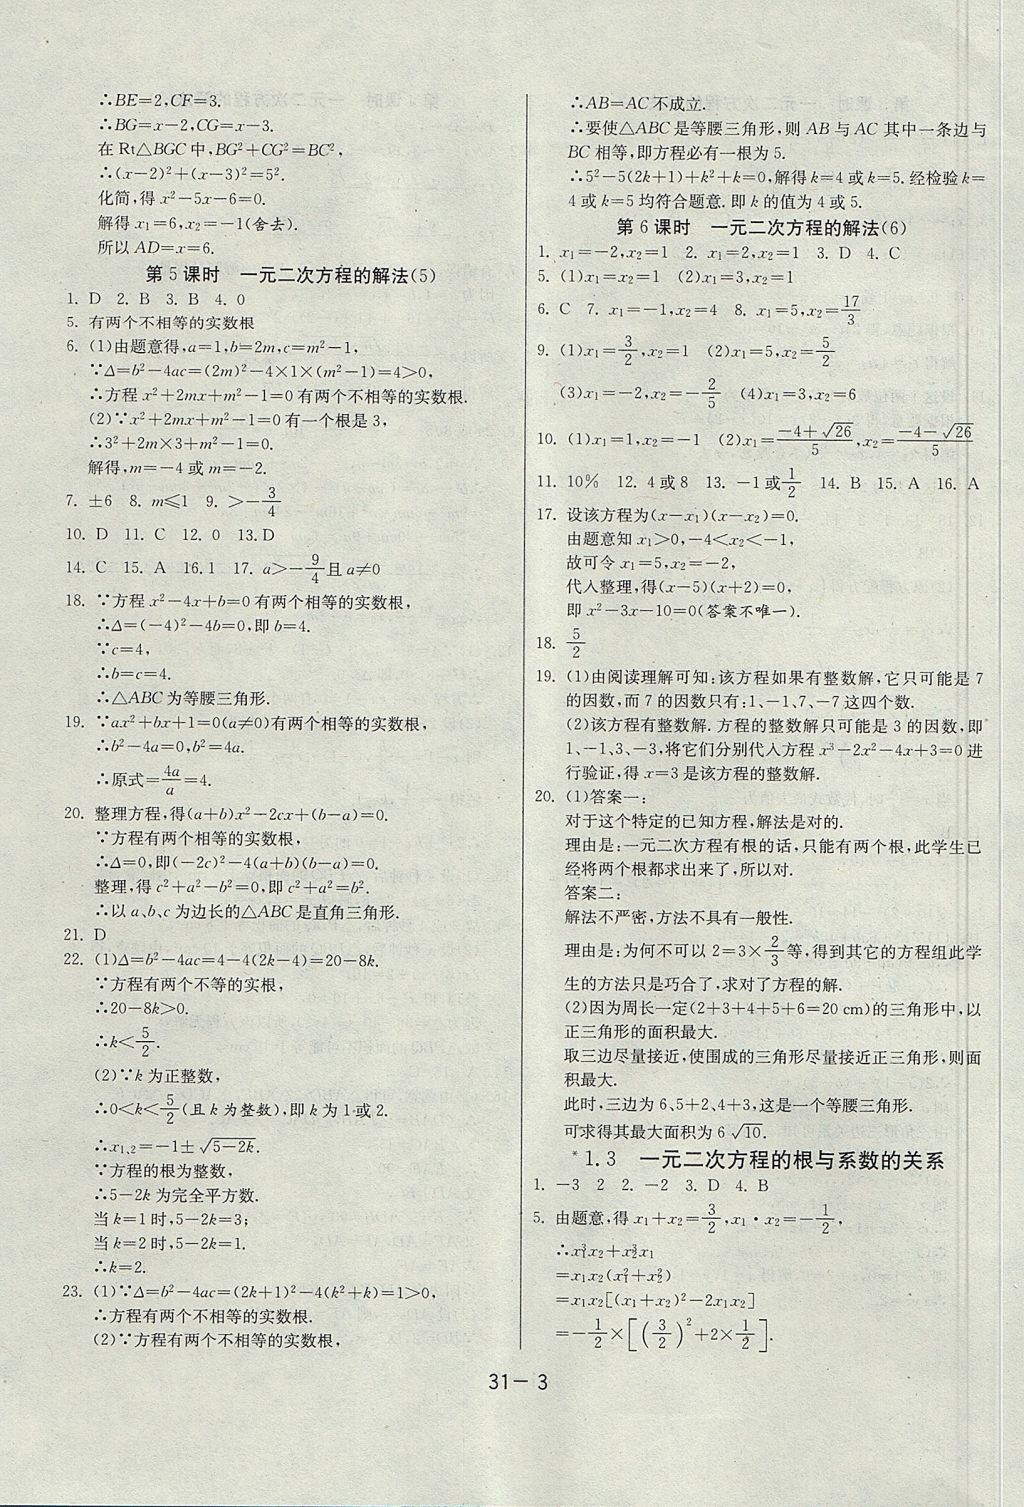 ∴BE=2,CF=3.
∴BG=x-2,CG=x-3.
在 Rt△BGC 中,BG²+CG²=BC²,
∴(x-2)²+(x-3)²=5².
化简,得 x²-5x-6=0.
解得 x₁=6,x₂=-1(舍去).
所以 AD=x=6.
第 5 课时 一元二次方程的解法(5)
1. D 2. B 3. B 4. 0
5. 有两个不相等的实数根
6. (1)由题意得,a=1,b=2m,c=m²-1,
∵Δ=b²-4ac=(2m)²-4×1×(m²-1)=4>0,
∴方程 x²+2mx+m²-1=0 有两个不相等的实数根.
(2)∵x²+2mx+m²-1=0 有一个根是 3,
∴3²+2m×3+m²-1=0.
解得,m=-4 或 m=-2.
7. ±6 8. m≤1 9. >-3/4
10. D 11. C 12. 0 13. D
14. C 15. A 16. 1 17. a>-9/4且 a≠0
18. ∵方程 x²-4x+b=0 有两个相等的实数根,
∴Δ=(-4)²-4b=0,即 b=4.
∵c=4,
∴b=c=4.
∴△ABC 为等腰三角形.
19. ∵ax²+bx+1=0(a≠0)有两个相等的实数根,
∴b²-4a=0,b²=4a.
∴原式=4a/a=4.
20. 整理方程,得(a+b)x²-2cx+(b-a)=0.
∵方程有两个相等的实数根,
∴Δ=0,即(-2c)²-4(a+b)(b-a)=0.
整理,得 c²+a²-b²=0,即 c²+a²=b².
∴以 a、b、c 为边长的△ABC 是直角三角形.
21. D
22. (1)Δ=b²-4ac=4-4(2k-4)=20-8k.
∵方程有两个不等的实根,
∴20-8k>0.
∴k<5/2.
(2)∵k 为正整数,
∴0<k<5/2(且 k 为整数),即 k 为 1 或 2.
∴x₁,₂=-1±√(5-2k).
∵方程的根为整数,
∴5-2k 为完全平方数.
当 k=1 时,5-2k=3;
当 k=2 时,5-2k=1.
∴k=2.
23. (1)∵Δ=b²-4ac=(2k+1)²-4(k²+k)=1>0,
∴方程有两个不相等的实数根.
(2)∵方程有两个不相等的实数根,
∴AB=AC 不成立.
∴要使△ABC 是等腰三角形,则 AB 与 AC 其中一条边与
BC 相等,即方程必有一根为 5.
∴5²-5(2k+1)+k²+k=0,解得 k=4 或 k=5. 经检验 k=
4 或 k=5 均符合题意. 即 k 的值为 4 或 5.
第 6 课时 一元二次方程的解法(6)
1. x₁=-2,x₂=1 2. x₁=2,x₂=1 3. D 4. C
5. (1)x₁=-2,x₂=1 (2)x₁=3,x=1
6. C 7. x₁=-1,x₂=4 8. x₁=5,x₂=17/3
9. (1)x₁=3/2,x₂=1 (2)x₁=5,x₂=5/2
(3)x₁=-2,x₂=-2/5 (4)x₁=3,x₂=6
10. (1)x₁=1,x₂=-1 (2)x₁=(-4+√26)/5,x₂=(-4-√26)/5
11. 10% 12. 4 或 8 13. -1 或1/2 14. B 15. A 16. A
17. 设该方程为(x-x₁)(x-x₂)=0.
由题意知 x₁>0,-4<x₂<-1,
故可令 x₁=5,x₂=-2,
代人整理,得(x-5)(x+2)=0,
即 x²-3x-10=0(答案不唯一).
18. 5/2
19. (1)由阅读理解可知:该方程如果有整数解,它只可能是 7
的因数,而 7 的因数只有:1、-1、7、-7 这四个数.
(2)该方程有整数解. 方程的整数解只可能是 3 的因数,即
1、-1、3、-3,将它们分别代人方程 x³-2x²-4x+3=0 进
行验证,得 x=3 是该方程的整数解.
20. (1)答案一:
对于这个特定的已知方程,解法是对的.
理由是:一元二次方程有根的话,只能有两个根,此学生已
经将两个根都求出来了,所以对.
答案二:
解法不严密,方法不具有一般性.
理由是:为何不可以 2=3×2/3等,得到其它的方程组此学
生的方法只是巧合了,求对了方程的解.
(2)因为周长一定(2+3+4+5+6=20 cm)的三角形中,以
正三角形的面积最大.
取三边尽量接近,使围成的三角形尽量接近正三角形,则面
积最大.
此时,三边为 6、5+2、4+3,这是一个等腰三角形.
可求得其最大面积为 6√10.
*1.3 一元二次方程的根与系数的关系
1. -3 2 2. -2 3. D 4. B
5. 由题意,得 x₁+x₂=3/2,x₁·x₂=-1/2,
∴x₁³x₂+x₂³x₁
=x₁x₂(x₁²+x₂²)
=x₁x₂[(x₁+x₂)²-2x₁x₂]
=-1/2×[(3/2)²+2×1/2].
31-3